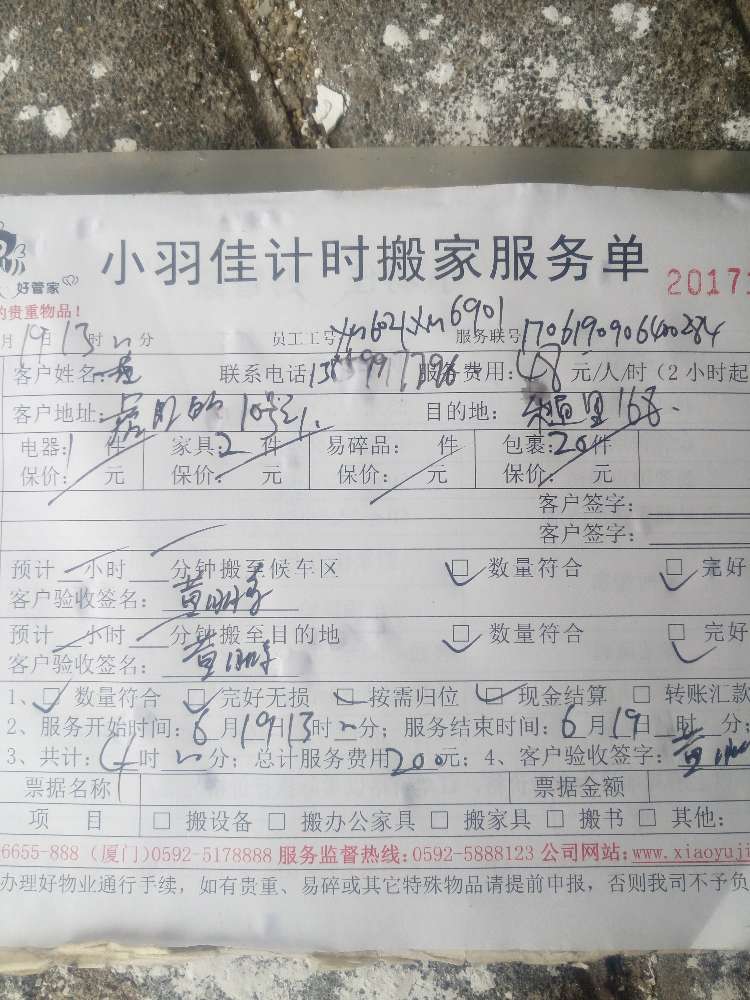 小羽佳计时搬家服务单 20171
好管家
的贵重物品!
月19日13时 分 员工工号 xm6021 xm6901 服务联号 17061909064
客户姓名:黄 联系电话 服务费用:48元/人/时(2小时起
客户地址: 10号 目的地: 里168.
电器:1件 家具:2件 易碎品: 件 包裹:20件
保价: 元 保价: 元 保价: 元 保价: 元
客户签字:
客户签字:
预计 小时 分钟搬至候车区 □数量符合 □完好
客户验收签名:黄
预计 小时 分钟搬至目的地 □数量符合 □完好
客户验收签名:黄
1、□数量符合 □完好无损 □按需归位 □现金结算 □转账汇款
2、服务开始时间:6月19日13时 分;服务结束时间:6月19日 时 分;
3、共计: 时 分;总计服务费用200元;4、客户验收签字:黄
票据名称 票据金额
项 目 □搬设备 □搬办公家具 □搬家具 □搬书 □其他:
6655-888 (厦门)0592-5178888 服务监督热线:0592-5888123 公司网站:www.xiaoyuji
办理好物业通行手续,如有贵重、易碎或其它特殊物品请提前申报,否则我司不予负